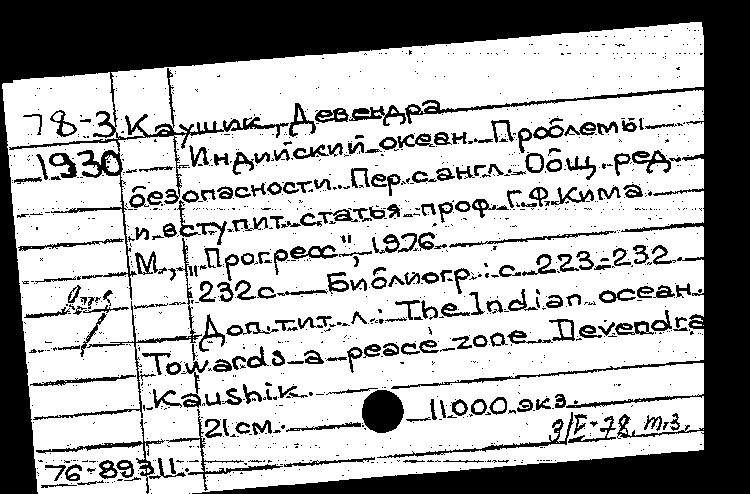 78-3 Каушик, Девендра
1930 Индийский океан. Проблемы
безопасности. Пер. с англ. Общ. ред.
и вступит. статья проф. Г.Ф. Кима.
М., „Прогресс", 1976.
232 с. Библиогр.: с. 223-232.
Доп. тит. л.: The Indian ocean.
Towards a peace zone Devendra
Kaushik.
21 см. 11000 экз.
76-89311.